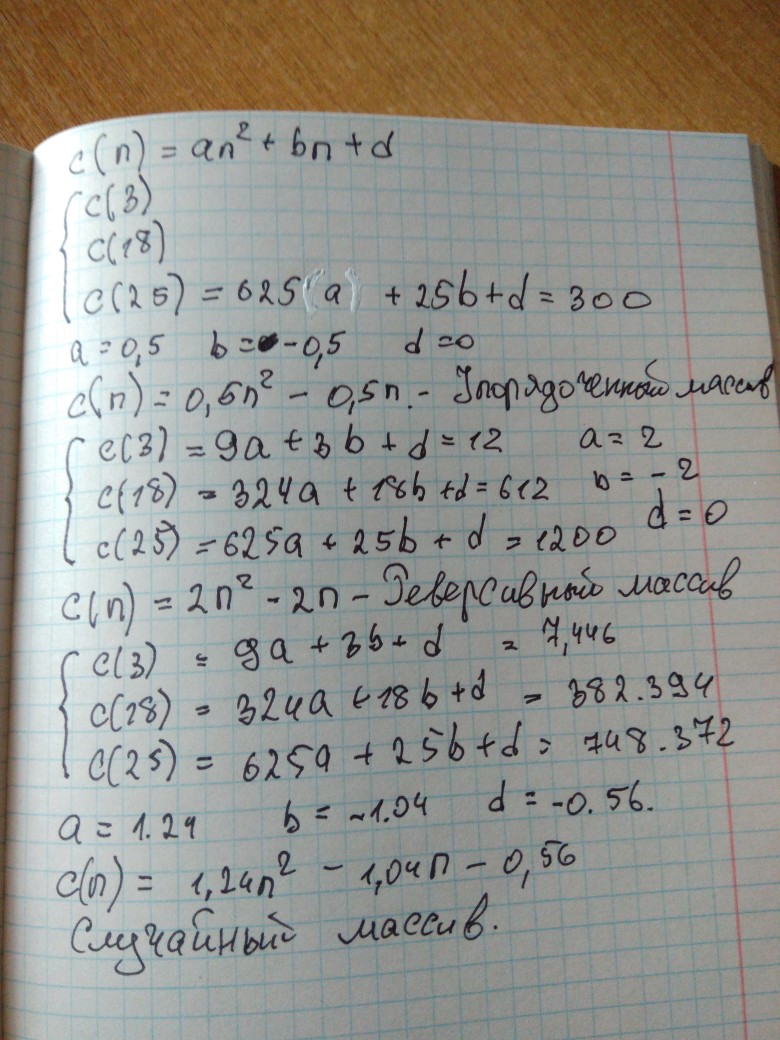 c(n) = an² + bn + d
c(3)
c(18)
c(25) = 625(a) + 25b + d = 300
a = 0,5 b = -0,5 d = 0
c(n) = 0,5n² - 0,5n. - Упорядоченный массив
c(3) = 9a + 3b + d = 12 a = 2
c(18) = 324a + 18b + d = 612 b = -2
c(25) = 625a + 25b + d = 1200 d = 0
c(n) = 2n² - 2n - Реверсивный массив
c(3) = 9a + 3b + d = 7,446
c(18) = 324a + 18b + d = 382.394
c(25) = 625a + 25b + d = 748.372
a = 1.24 b = -1.04 d = -0.56.
c(n) = 1,24n² - 1,04n - 0,56
Случайный массив.